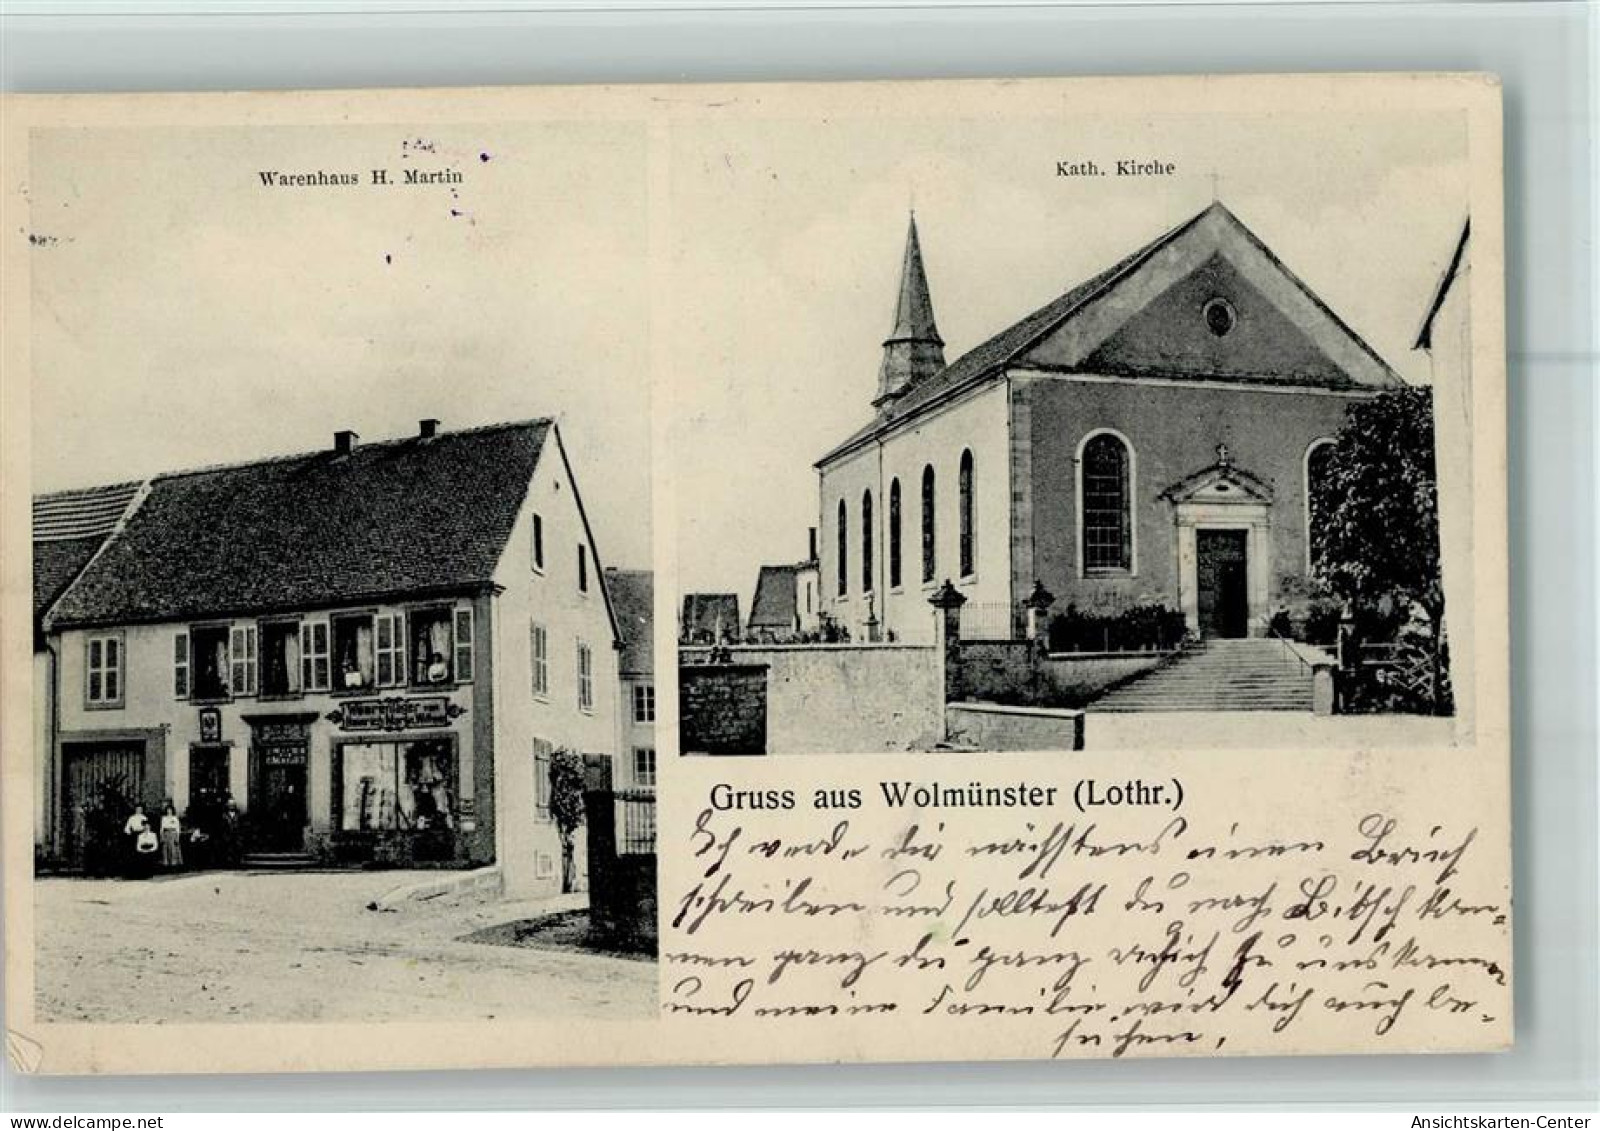 Warenhaus H. Martin
Kath. Kirche
Gruss aus Wolmünster (Lothr.)
Ich werde dir nächstens einen Brief
schreiben und solltest du nach Bitsch kom-
men ganz du ganz zu uns kommen
und meine Familie wird dich auch be-
suchen.
delcampe.net
Ansichtskarten-Center